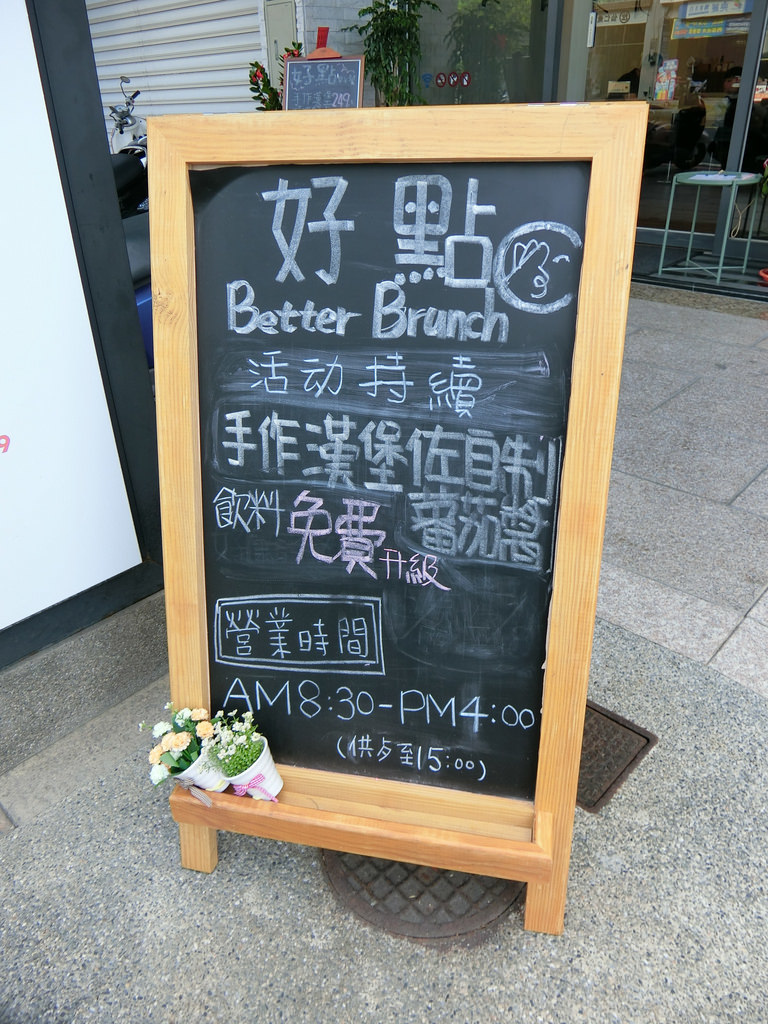 好點
手作漢堡249
好點
Better Brunch
活动持續
手作漢堡佐自制
蕃茄醬
飲料免費升級
營業時間
AM8:30-PM4:00
(供歺至15:00)
9